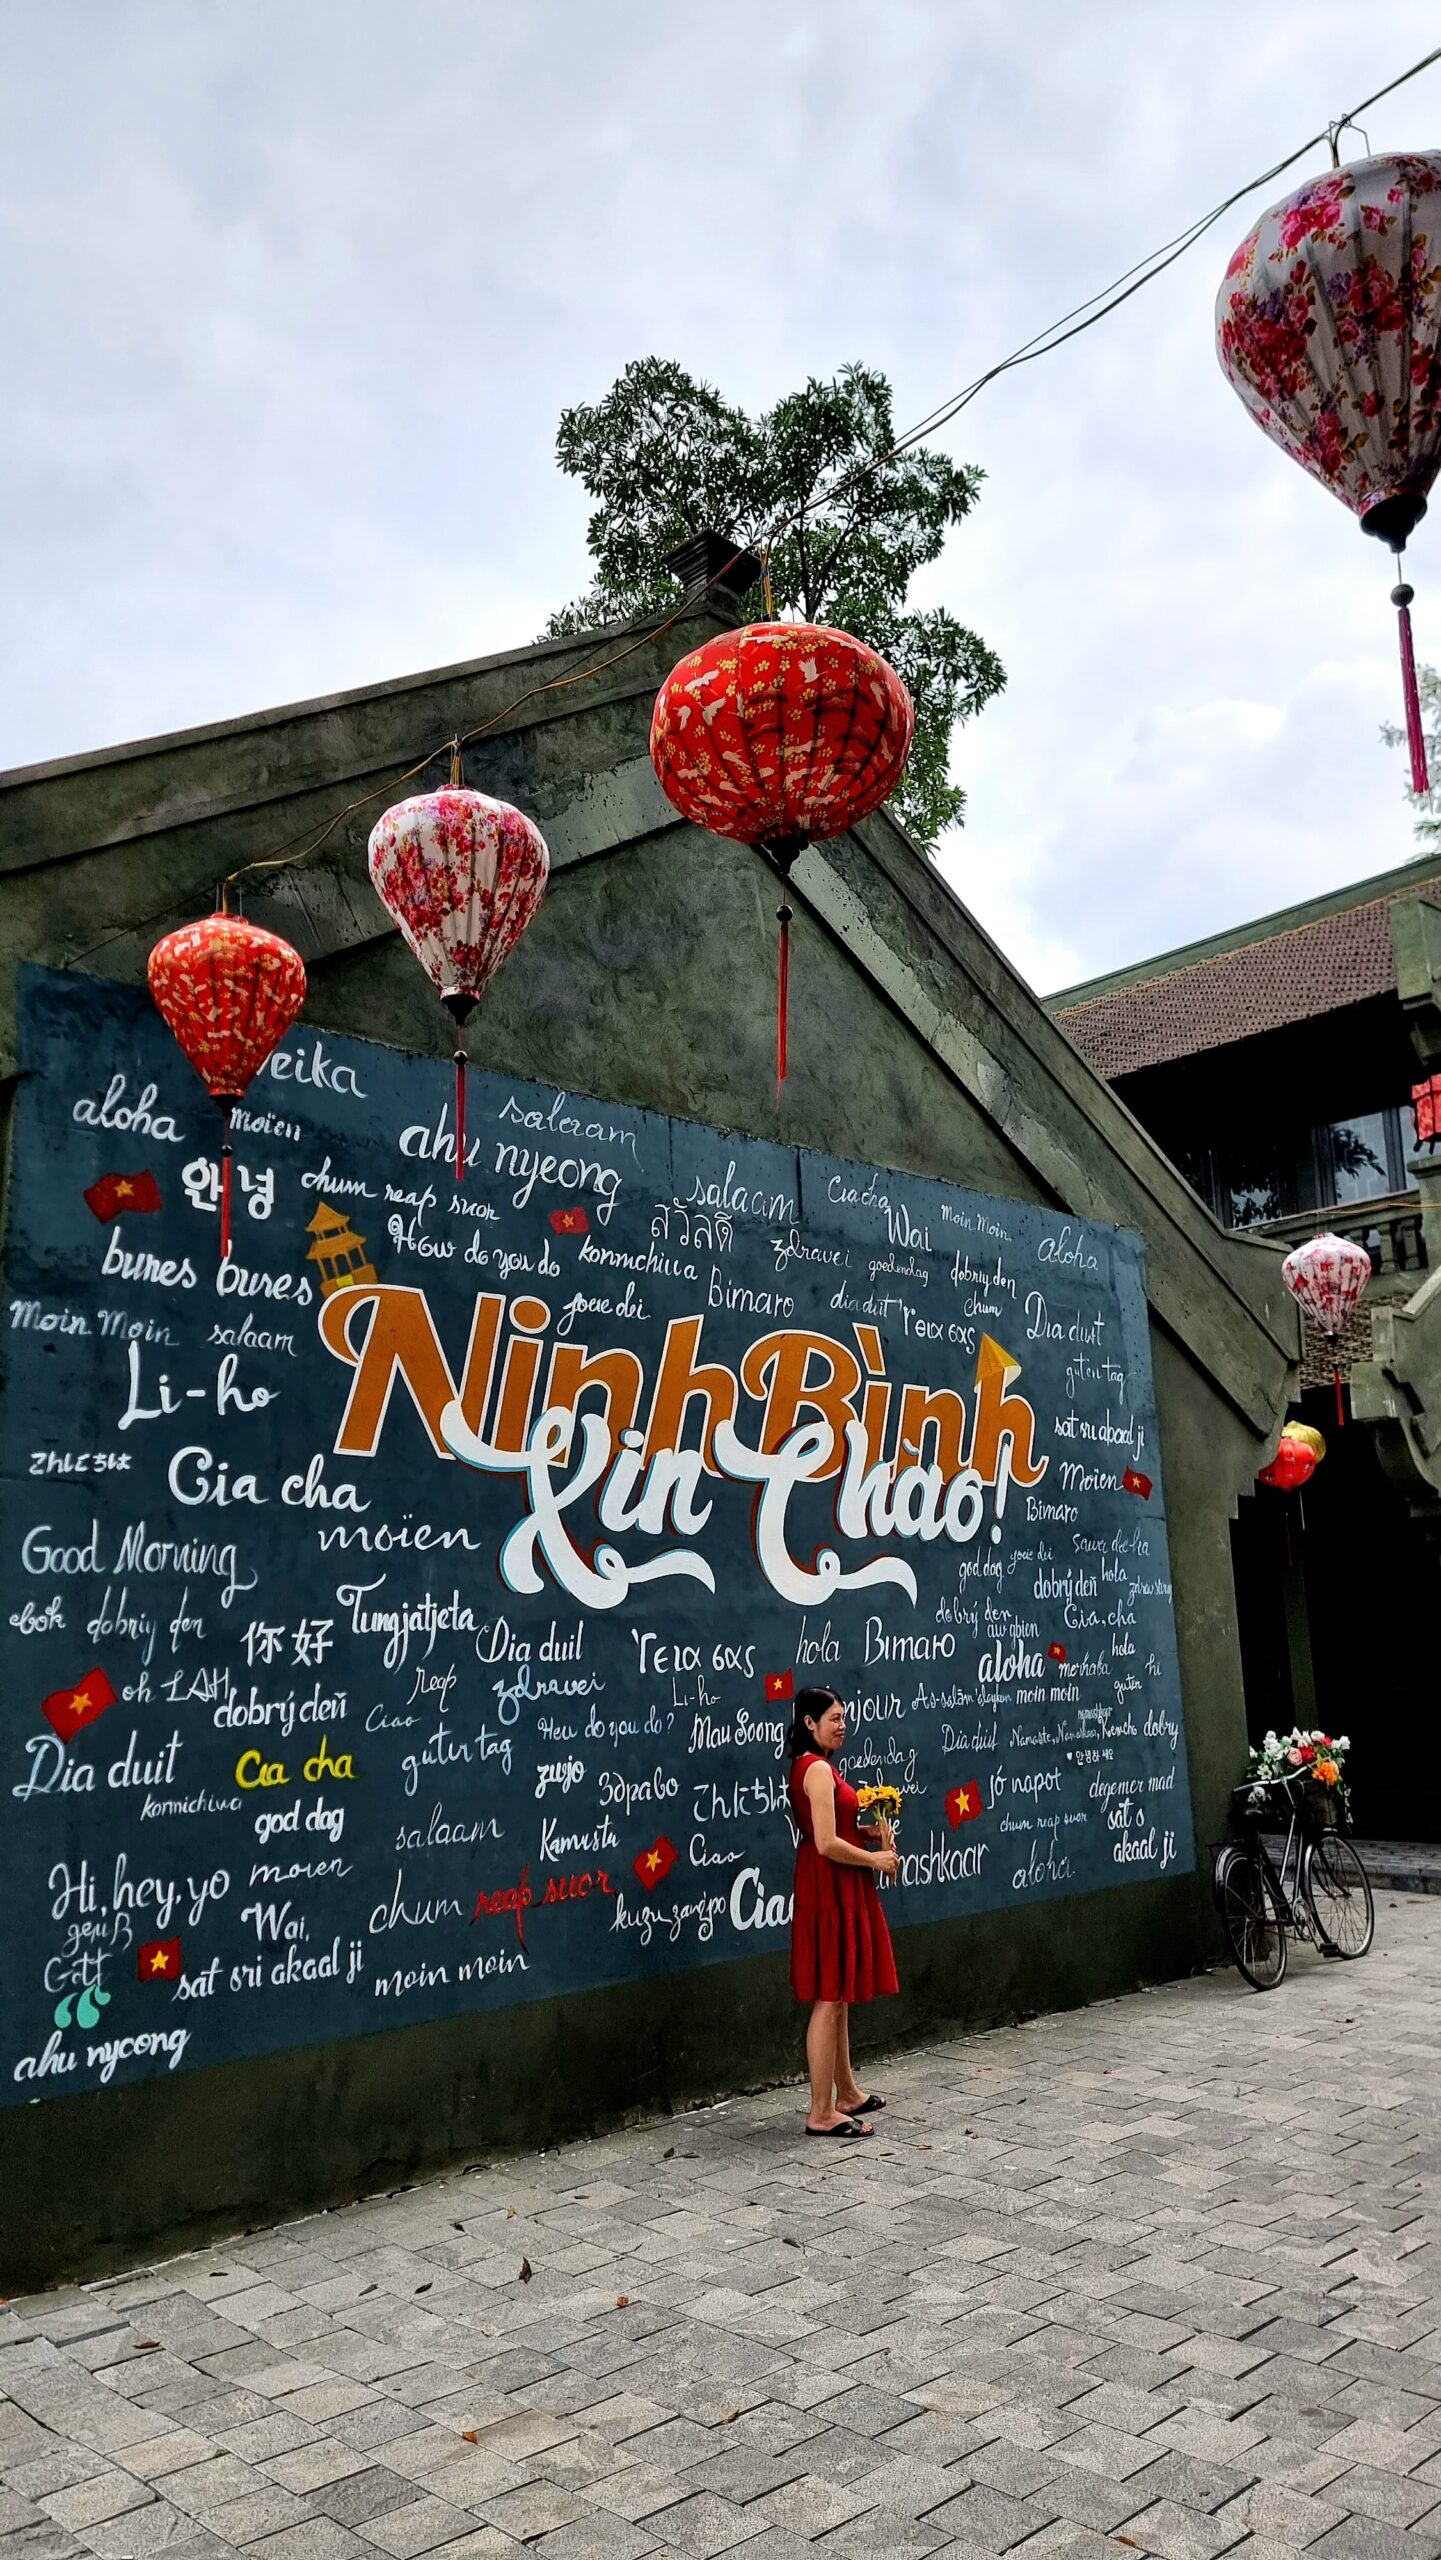 aloha
moïen
salaam
ahu nyeong
안녕
chum reap suor
salaam
Cia cha
Wai
moin. moin
aloha
สวัสดี
bunes bunes
How do you do
konnichiwa
zdravei
goedendag
dobriy den
Moin. Moin
salaam
joue dei
Bimaro
dia duit
Γεια σας
chum
Dia duit
guten tag
Li-ho
Ninh Bình
Xin Chào!
sat sri akaal ji
こんにちは
Cia cha
moïen
Moïen
Bimaro
Good Morning
god dag
joue dei
dobrý deň
hola
dobriy den
你好
Tungjatjeta
Dia duil
Γεια σας
hola
Bimaro
dobrý den
Cia, cha
aloha
merhaba
hola
guten
hi
oh LAH
dobrý deň
reap
zdravei
Li-ho
As-salām 'alaykum
moin moin
Dia duit
Ciao
guten tag
How do you do?
Mau Soong
goedendag
Dia duit
Namaste,
dobry
Cia cha
konnichiwa
god dag
zujo
Здраво
こんにちは
jó napot
♥ 안녕하세요
degemer mad
salaam
Kamusta
Ciao
chum reap suor
sat o
akaal ji
Hi, hey, yo
moïen
chum reap suor
aloha.
Wai,
Gott
kuzu zangpo
sat sri akaal ji
moin moin
ahu nyeong